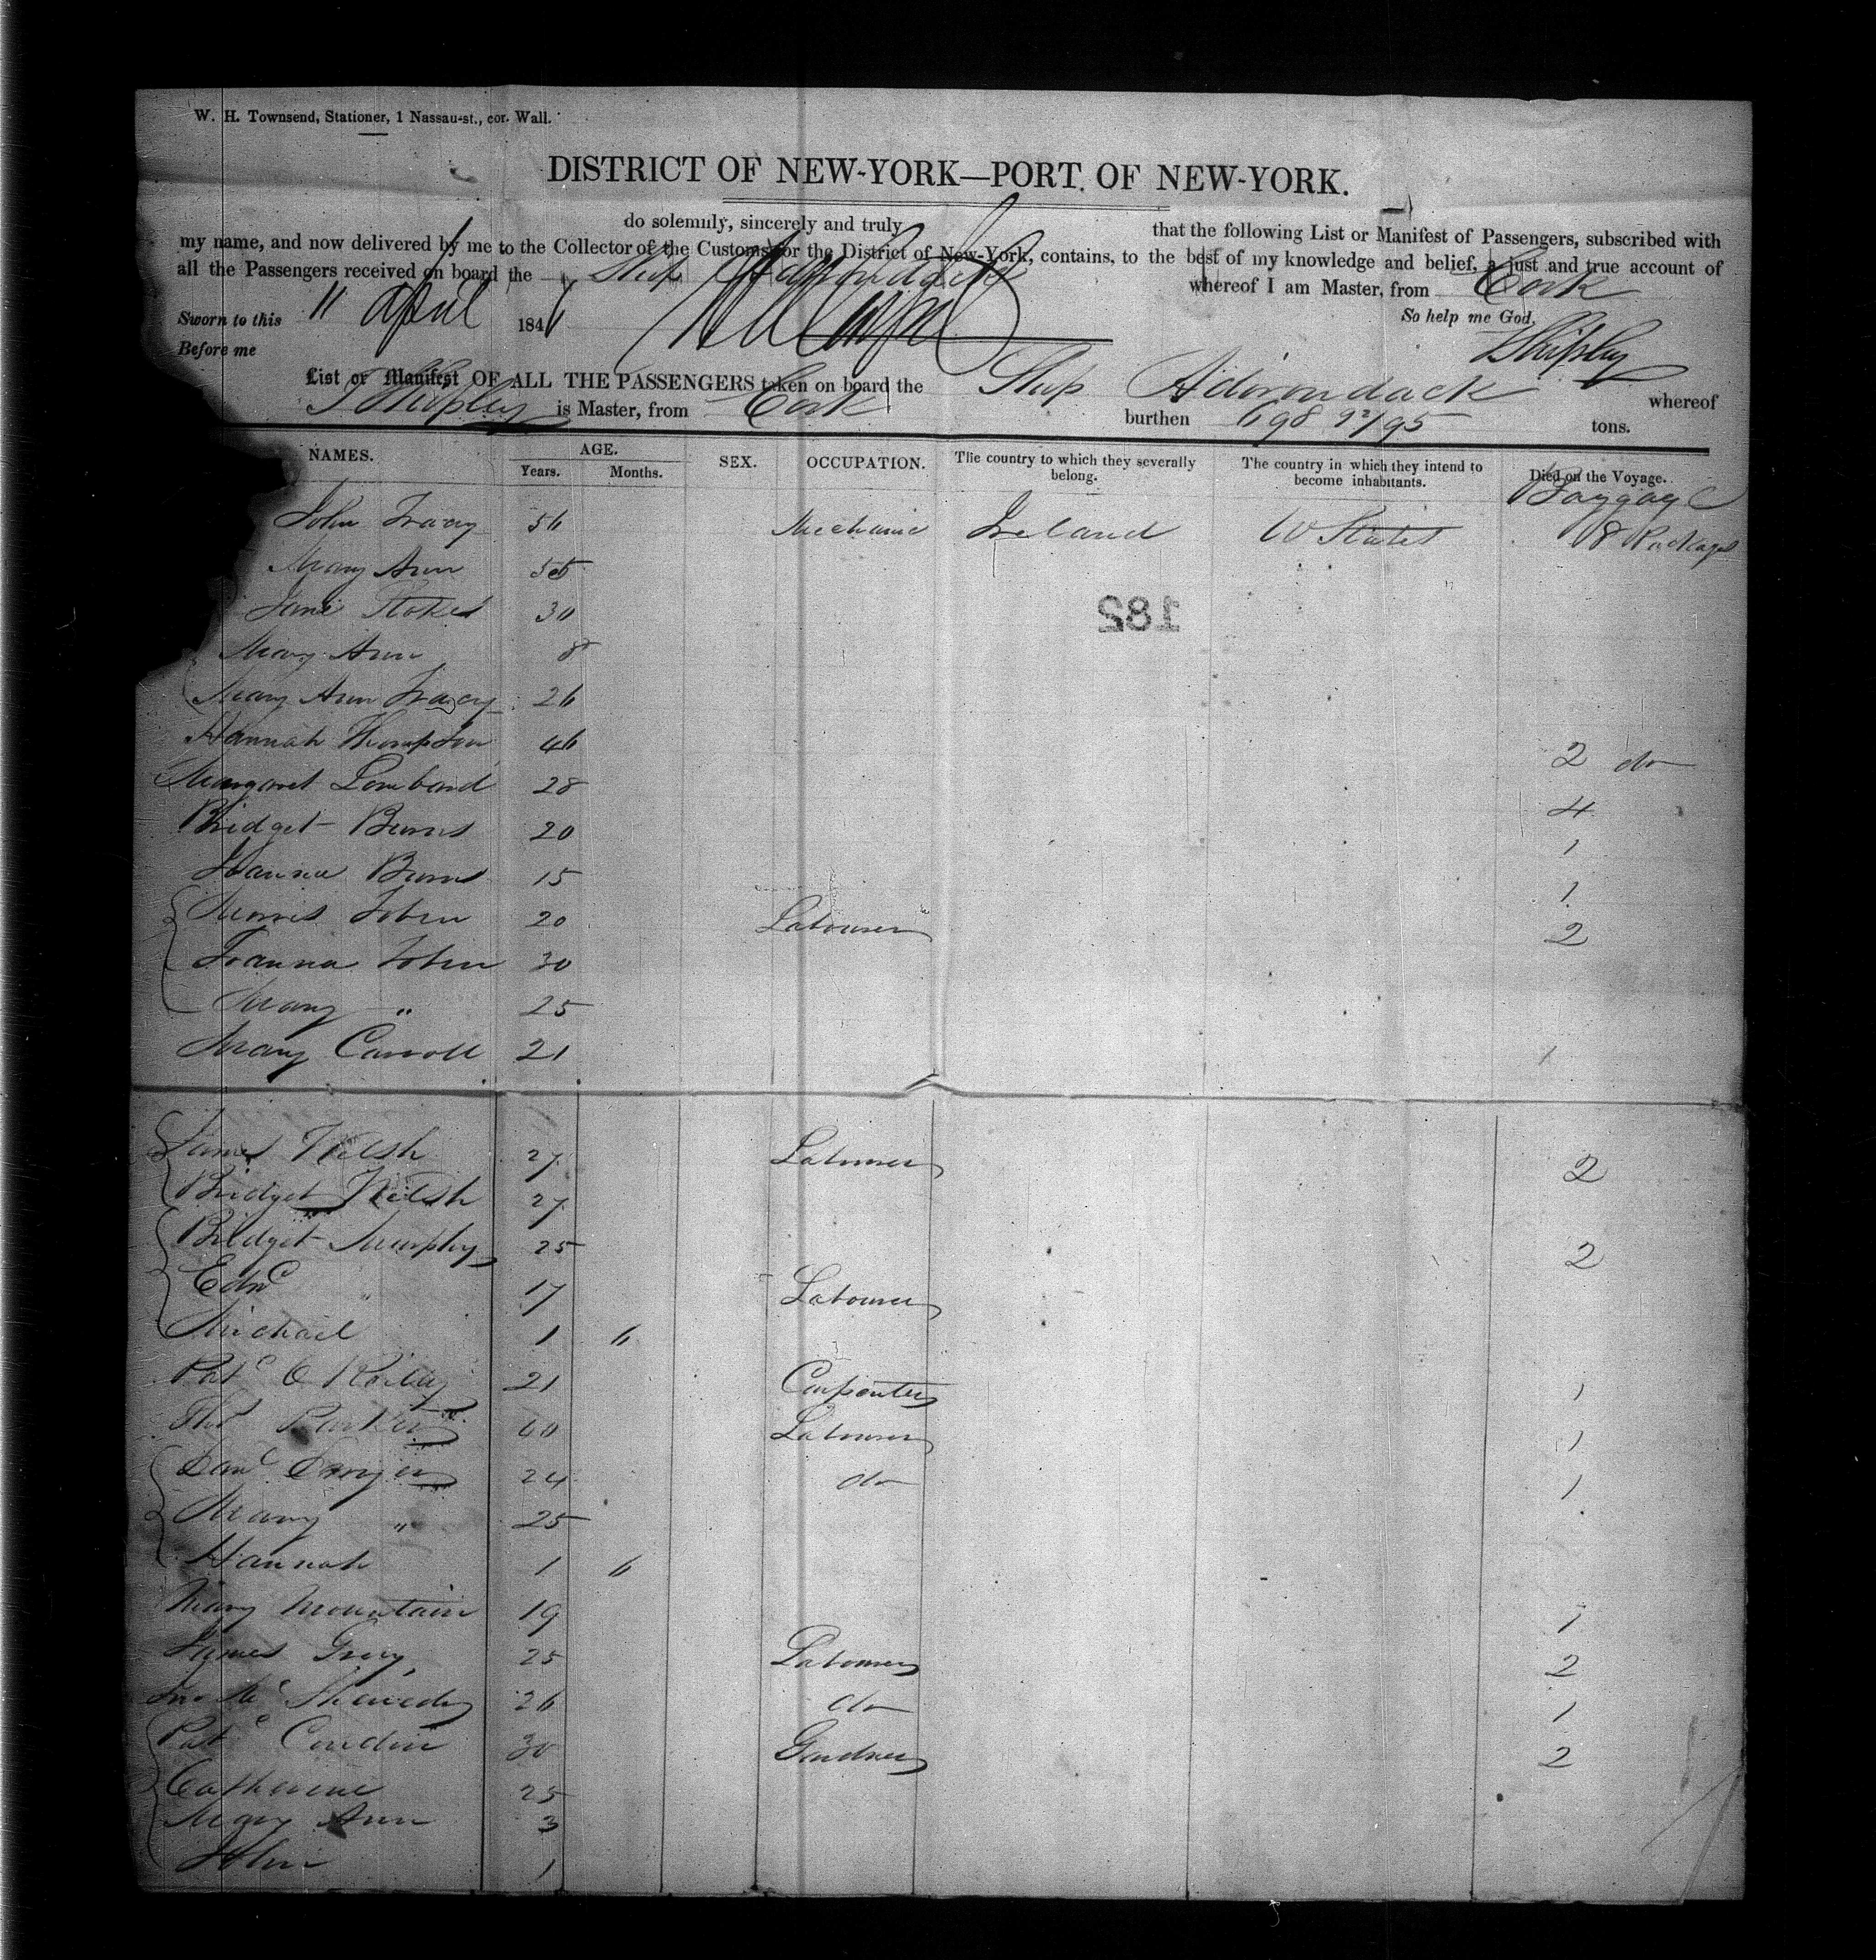 W. H. Townsend, Stationer, 1 Nassau-st., cor. Wall.
DISTRICT OF NEW-YORK—PORT OF NEW-YORK.
do solemnly, sincerely and truly that the following List or Manifest of Passengers, subscribed with
my name, and now delivered by me to the Collector of the Customs for the District of New-York, contains, to the best of my knowledge and belief, a just and true account of
all the Passengers received on board the Ship Adirondack whereof I am Master, from Cork
Sworn to this 11 April 1846 So help me God,
Before me Shipley
List or Manifest OF ALL THE PASSENGERS taken on board the Ship Adirondack whereof
Shipley is Master, from Cork burthen 698 92/95 tons.
NAMES. AGE. Years. Months. SEX. OCCUPATION. The country to which they severally belong. The country in which they intend to become inhabitants. Died on the Voyage.
Baggage
John Tracy 56 Mechanic Ireland U States 8 Packages
Mary Ann 55
Jane Stokes 30
182
Mary Ann 8
Mary Ann Tracy 26
Hannah Thompson 46 2 do
Margaret Lombard 28 4
Bridget Burns 20 1
Joanna Burns 15 1
Morris Tobin 20 Labourer 2
Joanna Tobin 30
Mary " 25
Mary Carroll 21 1
James Welsh 27 Labourer 2
Bridget Welsh 27
Bridget Murphy 25 2
Edwd " 17 Labourer
Michael 1 6
Patk O Reiley 21 Carpenter 1
Thos Parker 60 Labourer 1
Danl Dwyer 24 do 1
Mary " 25
Hannah 1 6
Mary Mountain 19 1
James Grey 25 Labourer 2
Jno Mc 26 do 1
Patk Condin 30 Gardner 2
Catherine 25
Mary Ann 3
John 1